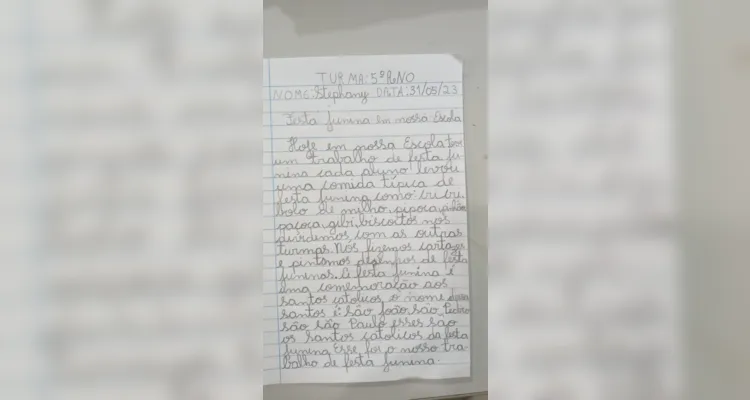 TURMA: 5º ANO
NOME: Stephany DATA: 31/05/23
Festa junina em nossa Escola
Hoje em nossa Escola teve
um trabalho de festa ju-
nina cada aluno levou
uma comida típica de
festa junina como:
bolo de milho, pipoca,
paçoca, biscoitos nos
dividemos com as outras
turmas. Nós fizemos cartazes
e pintamos desenhos de festa
juninas. A festa junina é
uma comemoração aos
santos católicos, o nome
santos é são joão são Pedro
são são Paulo esses são
os santos católicos da festa
junina Esse foi o nosso tra-
balho de festa junina.